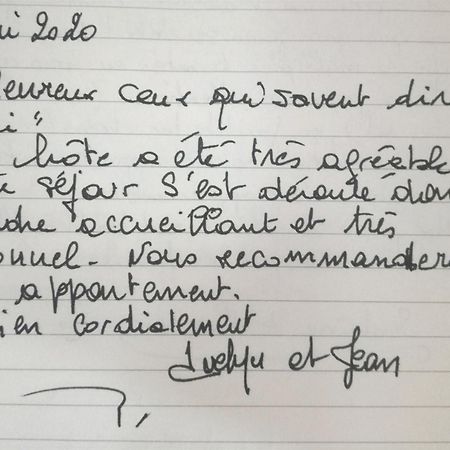 i 2020
eureux ceux qui savent dir
i"
hôte a été très agréable
séjour s'est déroulé dan
dre accueillant et très
onnel. Nous recommander
appartement.
ien cordialement
Evelyn et Jean